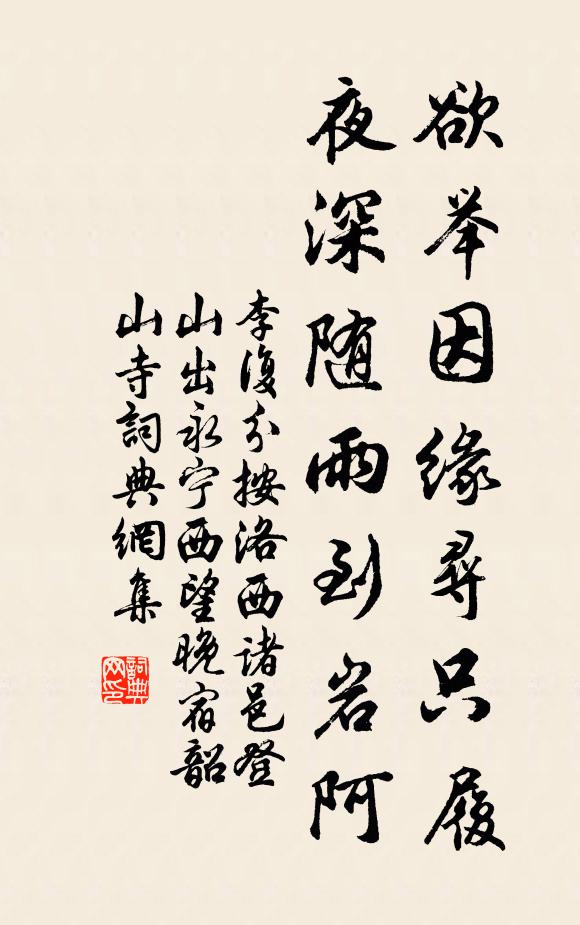 欲举因缘尋只履
夜深随雨到岩阿
李復分按洛西诸邑登
山出永宁西望晚宿韶
山寺詞典網集
詞典
网印